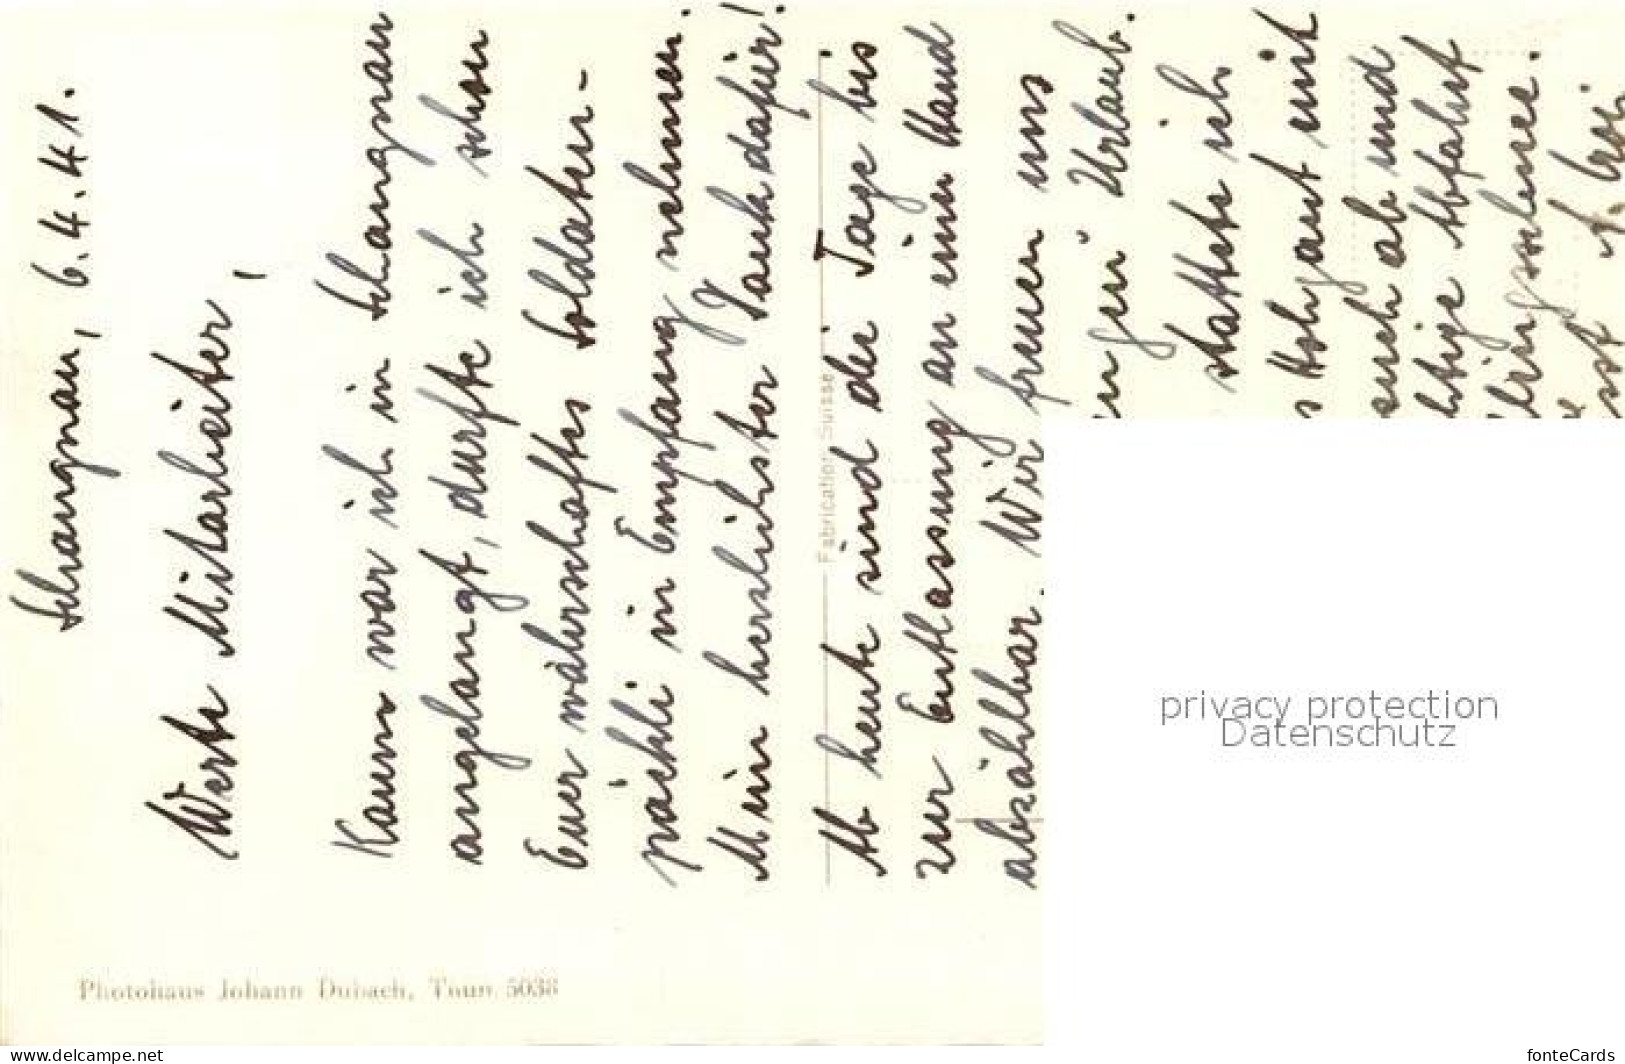 Schangnau, 6.4.41.
Werte Mitarbeiter,
Kaum war ich in Schangnau
angelangt, durfte ich schon
Euer währschaftes Soldaten-
päckli in Empfang nehmen.
Mein herzlichster Dank dafür!
Ab heute sind die Tage bis
zur Entlassung an einer Hand
abzählbar. Wir freuen uns
Urlaub.
stattete ich
Hohgant mit
ab und
htige Abfahrt
lingsschnee.
Fabrication Suisse
Photohaus Johann Dubach, Thun 5038
privacy protection
Datenschutz
www.delcampe.net
fonteCards